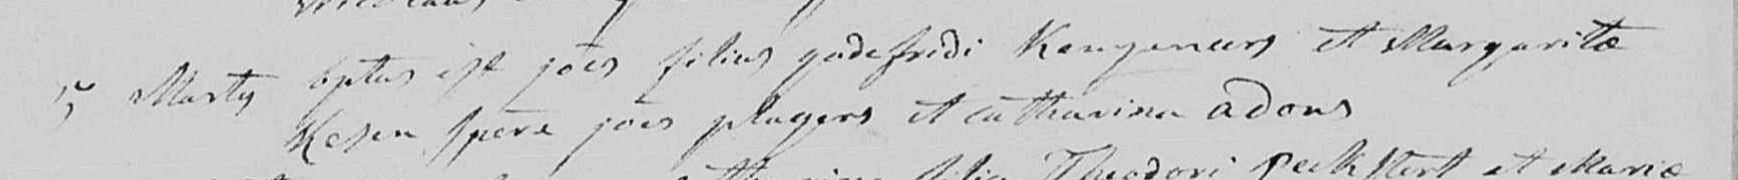 5 Marty bptus est joes filius godefridi Kengeneers et Margaritæ
Kesen sperē joēs plugers et catharina adons
filia Theodori Peeksteert et Mariæ